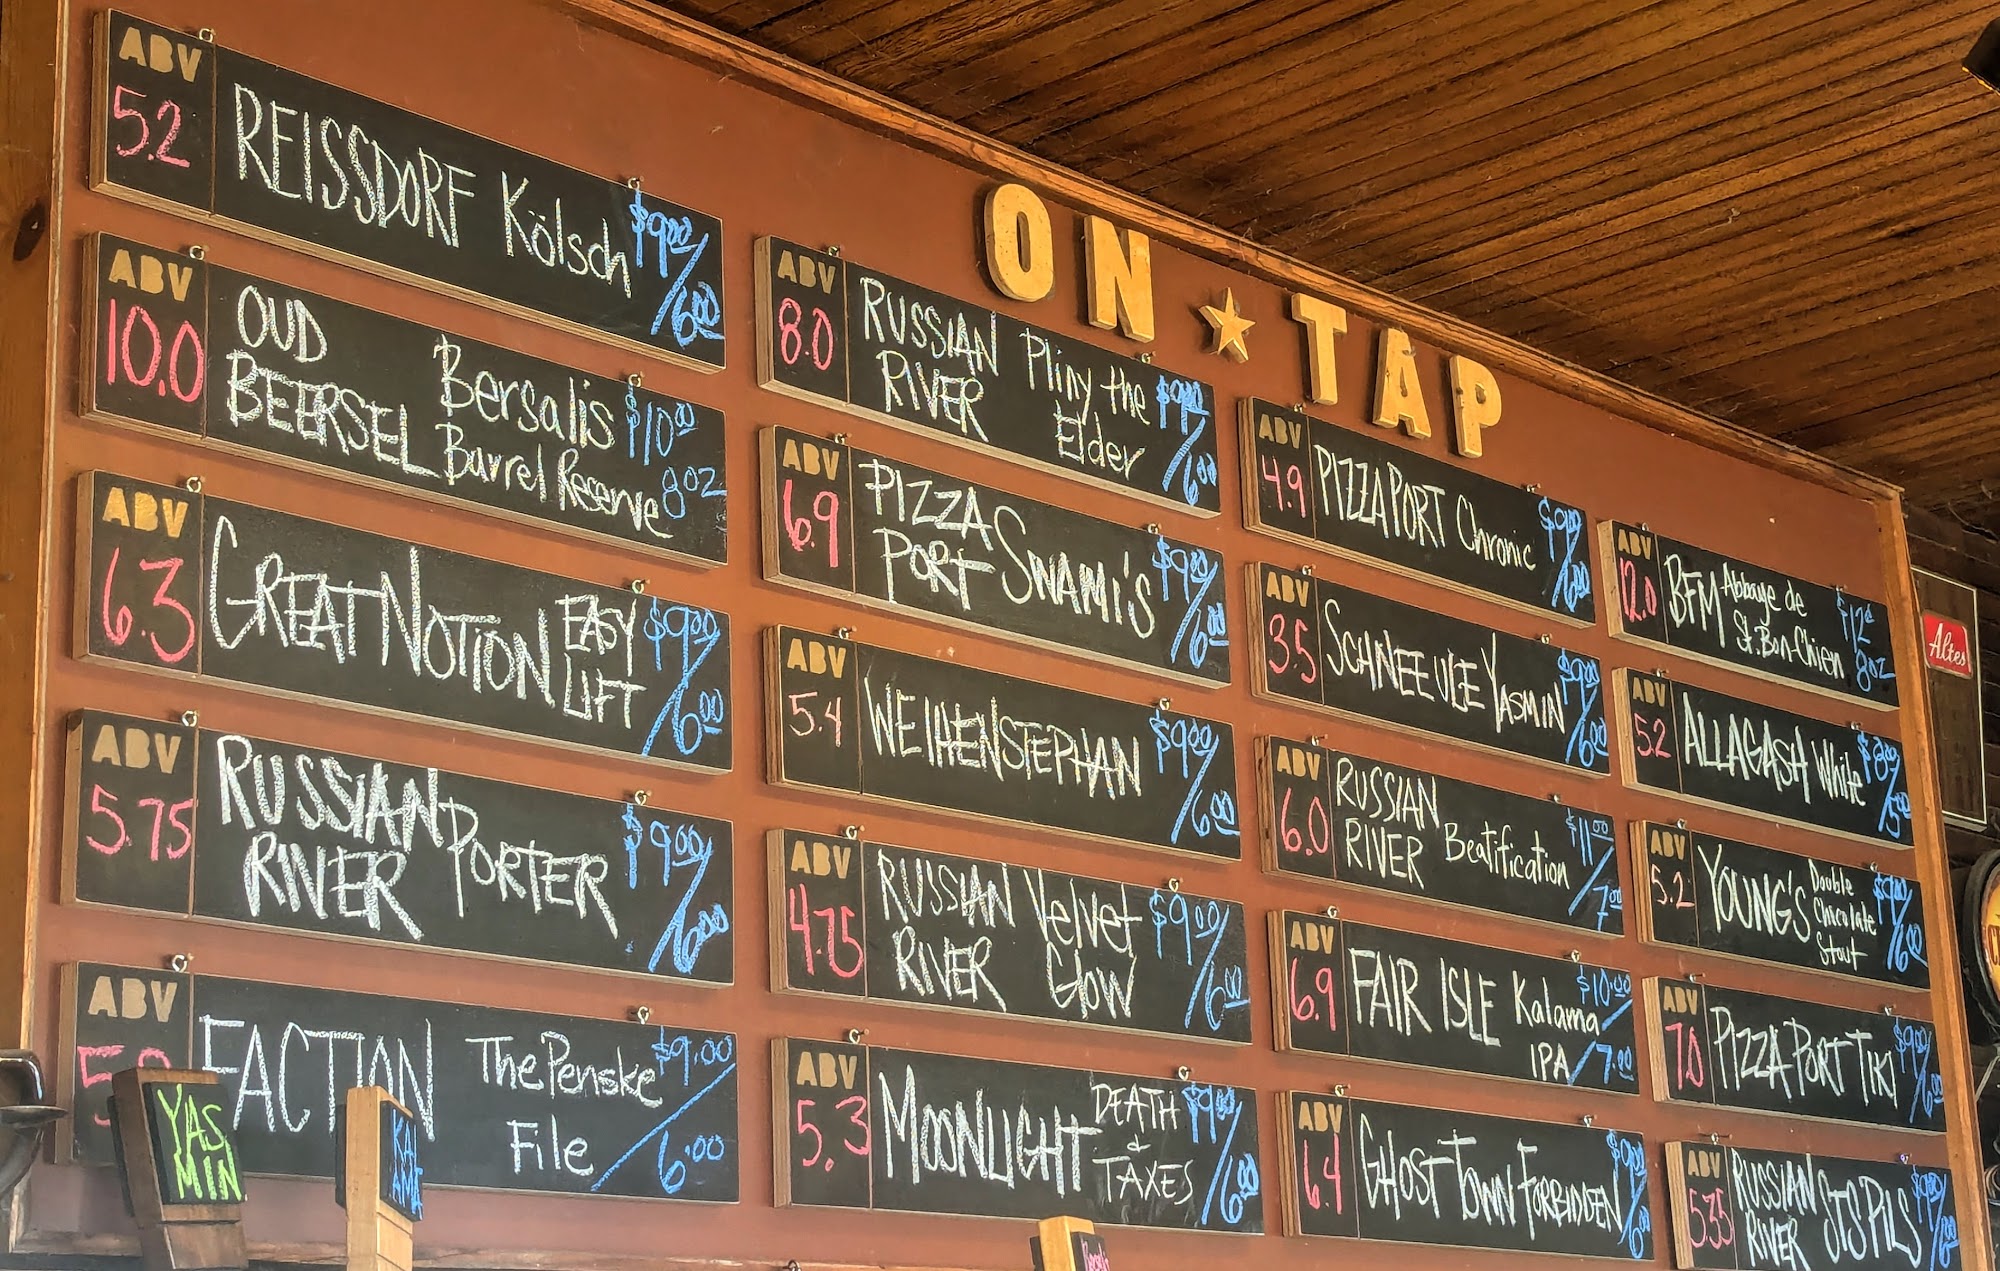 ON ★ TAP
ABV
5.2
REISSDORF Kölsch
$9.00/6.00
ABV
10.0
OUD
BEERSEL
Bersalis
Barrel Reserve
$10.00
8oz
ABV
6.3
GREAT NOTION
EASY
LIFT
$9.00/6.00
ABV
5.75
RUSSIAN
RIVER
PORTER
$9.00/6.00
ABV
FACTION
The Penske
File
$9.00/6.00
ABV
8.0
RUSSIAN
RIVER
Pliny the
Elder
$9.00/6.00
ABV
6.9
PIZZA
PORT
SWAMI'S
$9.00/6.00
ABV
5.4
WEIHENSTEPHAN
$9.00/6.00
ABV
4.75
RUSSIAN
RIVER
Velvet
Glow
$9.00/6.00
ABV
5.3
MOONLIGHT
DEATH
&
TAXES
$9.00/6.00
ABV
4.9
PIZZA PORT Chronic
$9.00/6.00
ABV
3.5
SCHNEEULE YASMIN
$9.00/6.00
ABV
6.0
RUSSIAN
RIVER
Beatification
$11.00/7.00
ABV
6.9
FAIR ISLE
Kalama
IPA
$10.00/7.00
ABV
6.4
GHOST TOWN FORBIDDEN
ABV
12.0
BFM
Abbaye de
St. Bon-Chien
8oz
ABV
5.2
ALLAGASH White
$8.00/5.00
ABV
5.2
YOUNG'S
Double
Chocolate
Stout
$9.00/6.00
ABV
7.0
PIZZA PORT TIKI
$9.00/6.00
ABV
5.35
RUSSIAN
RIVER
STS PILS
YAS
MIN
KAL
AMA
Altes